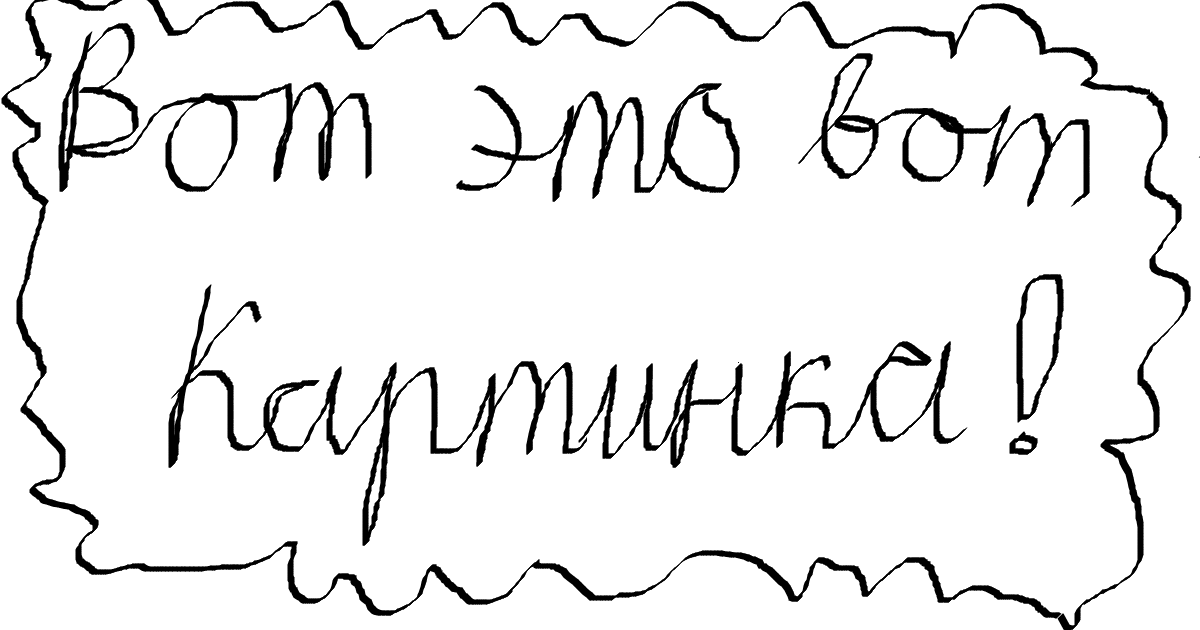 Вот это вот
Картинка!